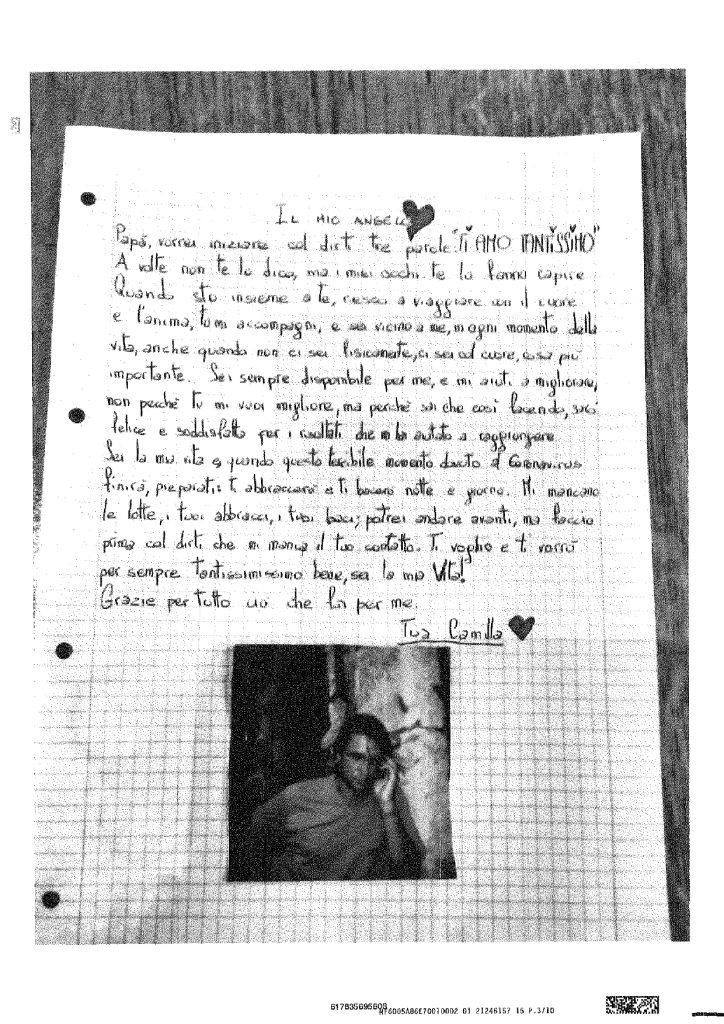 IL MIO ANGELO
Papá, vorrei iniziare col dirti tre parole:"TI AMO TANTISSIMO"
A volte non te lo dico, ma i miei occhi te lo fanno capire
Quando sto insieme a te, riesco a viaggiare con il cuore
e l'anima, tu mi accompagni, e sei vicino a me, in ogni momento della
vita, anche quando non ci sei fisicamente, ci sei col cuore, cosa più
importante. Sei sempre disponibile per me, e mi aiuti a migliorare,
non perché tu mi vuoi migliore, ma perché sai che così facendo, sarò
felice e soddisfatta per i risultati che mi hai aiutato a raggiungere
Sei la mia vita e, quando questo terribile momento dovuto al Coronavirus
finirà, preparati: ti abbraccerò e ti bacerò notte e giorno. Mi mancano
le lotte, i tuoi abbracci, i tuoi baci; potrei andare avanti, ma faccio
prima col dirti che mi manca il tuo contatto. Ti voglio e ti vorrò
per sempre tantissimissimo bene, sei la mia Vita!
Grazie per tutto ciò che fai per me.
Tua Camilla
617835695608